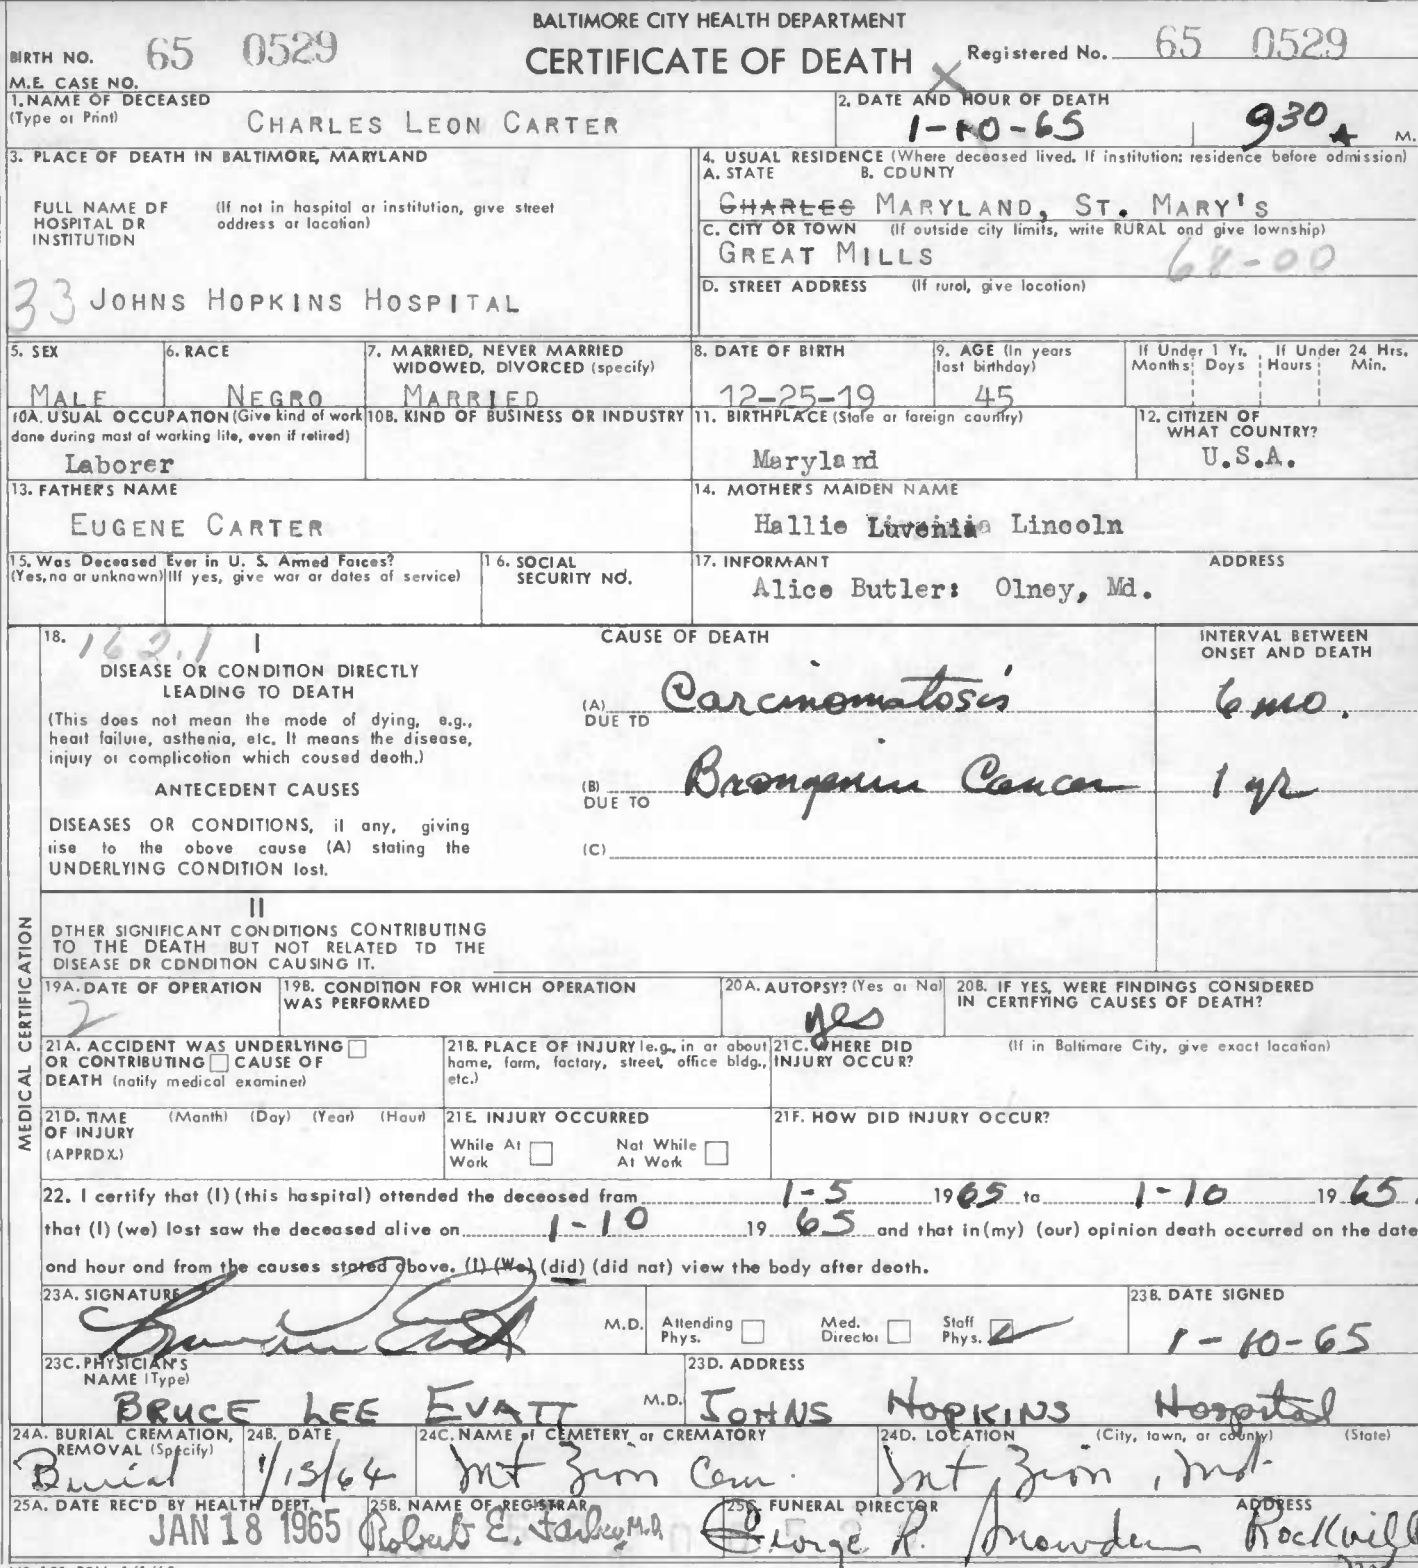 BALTIMORE CITY HEALTH DEPARTMENT
CERTIFICATE OF DEATH
BIRTH NO. 65 0529
Registered No. 65 0529
M.E. CASE NO.
1. NAME OF DECEASED
(Type or Print)
CHARLES LEON CARTER
2. DATE AND HOUR OF DEATH
1-10-65 930 A M.
3. PLACE OF DEATH IN BALTIMORE, MARYLAND
FULL NAME OF HOSPITAL OR INSTITUTION
(If not in hospital or institution, give street address or location)
33 JOHNS HOPKINS HOSPITAL
4. USUAL RESIDENCE (Where deceased lived. If institution: residence before admission)
A. STATE B. COUNTY
CHARLES MARYLAND, ST. MARY'S
C. CITY OR TOWN (If outside city limits, write RURAL and give township)
GREAT MILLS 68-00
D. STREET ADDRESS (If rural, give location)
5. SEX
MALE
6. RACE
NEGRO
7. MARRIED, NEVER MARRIED
WIDOWED, DIVORCED (specify)
MARRIED
8. DATE OF BIRTH
12-25-19
9. AGE (In years
last birthday)
45
If Under 1 Yr. If Under 24 Hrs.
Months Days Hours Min.
10A. USUAL OCCUPATION (Give kind of work
done during most of working life, even if retired)
Laborer
10B. KIND OF BUSINESS OR INDUSTRY
11. BIRTHPLACE (State or foreign country)
Maryland
12. CITIZEN OF
WHAT COUNTRY?
U.S.A.
13. FATHER'S NAME
EUGENE CARTER
14. MOTHER'S MAIDEN NAME
Hallie Luvenia Lincoln
15. Was Deceased Ever in U. S. Armed Forces?
(Yes, no or unknown) (If yes, give war or dates of service)
16. SOCIAL
SECURITY NO.
17. INFORMANT ADDRESS
Alice Butler: Olney, Md.
MEDICAL CERTIFICATION
18. 162.1 I
CAUSE OF DEATH
INTERVAL BETWEEN
ONSET AND DEATH
DISEASE OR CONDITION DIRECTLY
LEADING TO DEATH
(This does not mean the mode of dying, e.g.,
heart failure, asthenia, etc. It means the disease,
injury or complication which caused death.)
(A) Carcinomatosis 6 mo.
DUE TO
ANTECEDENT CAUSES
(B) Cancer 1 yr
DUE TO
DISEASES OR CONDITIONS, if any, giving
rise to the above cause (A) stating the
UNDERLYING CONDITION last.
(C)
II
OTHER SIGNIFICANT CONDITIONS CONTRIBUTING
TO THE DEATH BUT NOT RELATED TO THE
DISEASE OR CONDITION CAUSING IT.
19A. DATE OF OPERATION
2
19B. CONDITION FOR WHICH OPERATION
WAS PERFORMED
20A. AUTOPSY? (Yes or No)
yes
20B. IF YES, WERE FINDINGS CONSIDERED
IN CERTIFYING CAUSES OF DEATH?
21A. ACCIDENT WAS UNDERLYING
OR CONTRIBUTING CAUSE OF
DEATH (notify medical examiner)
21B. PLACE OF INJURY (e.g., in or about
home, farm, factory, street, office bldg.,
etc.)
21C. WHERE DID
INJURY OCCUR?
(If in Baltimore City, give exact location)
21D. TIME (Month) (Day) (Year) (Hour)
OF INJURY
(APPROX.)
21E. INJURY OCCURRED
While At Work
Not While At Work
21F. HOW DID INJURY OCCUR?
22. I certify that (I) (this hospital) attended the deceased from 1-5 1965 to 1-10 1965,
that (I) (we) last saw the deceased alive on 1-10 19 65 and that in (my) (our) opinion death occurred on the date
and hour and from the causes stated above. (I) (We) (did) (did not) view the body after death.
23A. SIGNATURE
M.D.
Attending Phys.
Med. Director
Staff Phys.
23B. DATE SIGNED
1-10-65
23C. PHYSICIAN'S
NAME (Type)
BRUCE LEE EVATT M.D.
23D. ADDRESS
JOHNS HOPKINS Hospital
24A. BURIAL CREMATION,
REMOVAL (Specify)
Burial
24B. DATE
1/15/64
24C. NAME of CEMETERY or CREMATORY
Mt Zion Cem.
24D. LOCATION (City, town, or county) (State)
Mt Zion, Md.
25A. DATE REC'D BY HEALTH DEPT.
JAN 18 1965
25B. NAME OF REGISTRAR
Robert E. Farber M.D.
25C. FUNERAL DIRECTOR ADDRESS
George R. Snowden Rockville